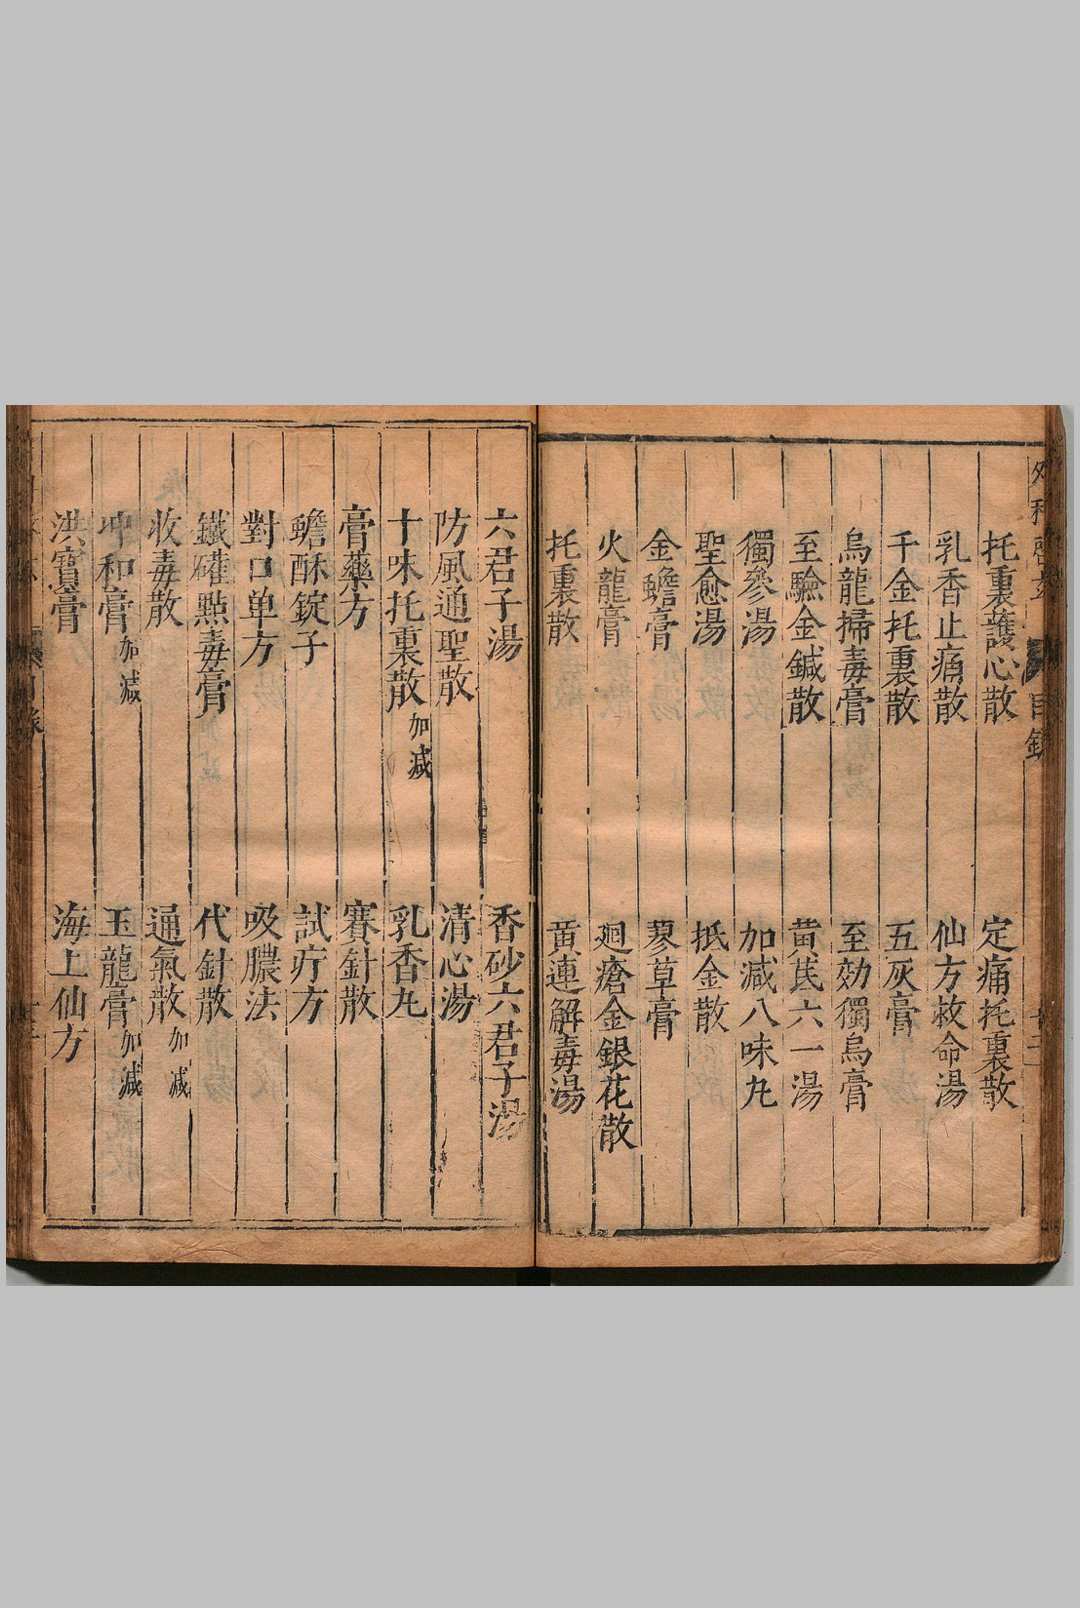 托裏護心散　定痛托裏散
乳香止痛散　仙方救命湯
千金托裏散　五灰膏
烏龍掃毒膏　至効獨烏膏
至驗金鍼散　黄芪六一湯
獨參湯　加減八味丸
聖愈湯　抵金散
金蟾膏　蓼草膏
火龍膏　廻瘡金銀花散
托裏散　黄連解毒湯
六君子湯　香砂六君子湯
防風通聖散　清心湯
十味托裏散加減　乳香丸
膏藥方　賽針散
蟾酥錠子　試疔方
對口单方　吸膿法
鐵礶點毒膏　代針散
收毒散　通氣散加减
冲和膏加減　玉龍膏加減
洪寳膏　海上仙方